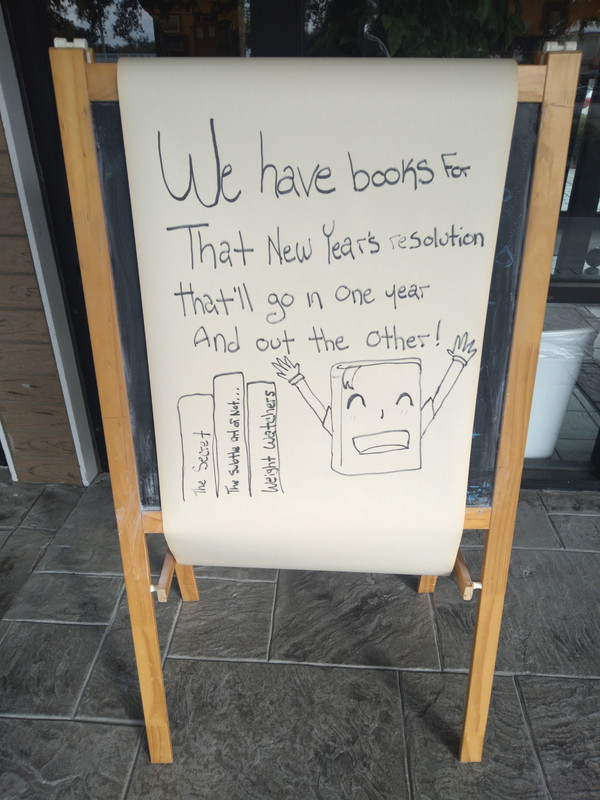 We have books For
That New Year's resolution
that'll go in one year
And out the other!
The Secret
The subtle art of Not...
Weight Watchers